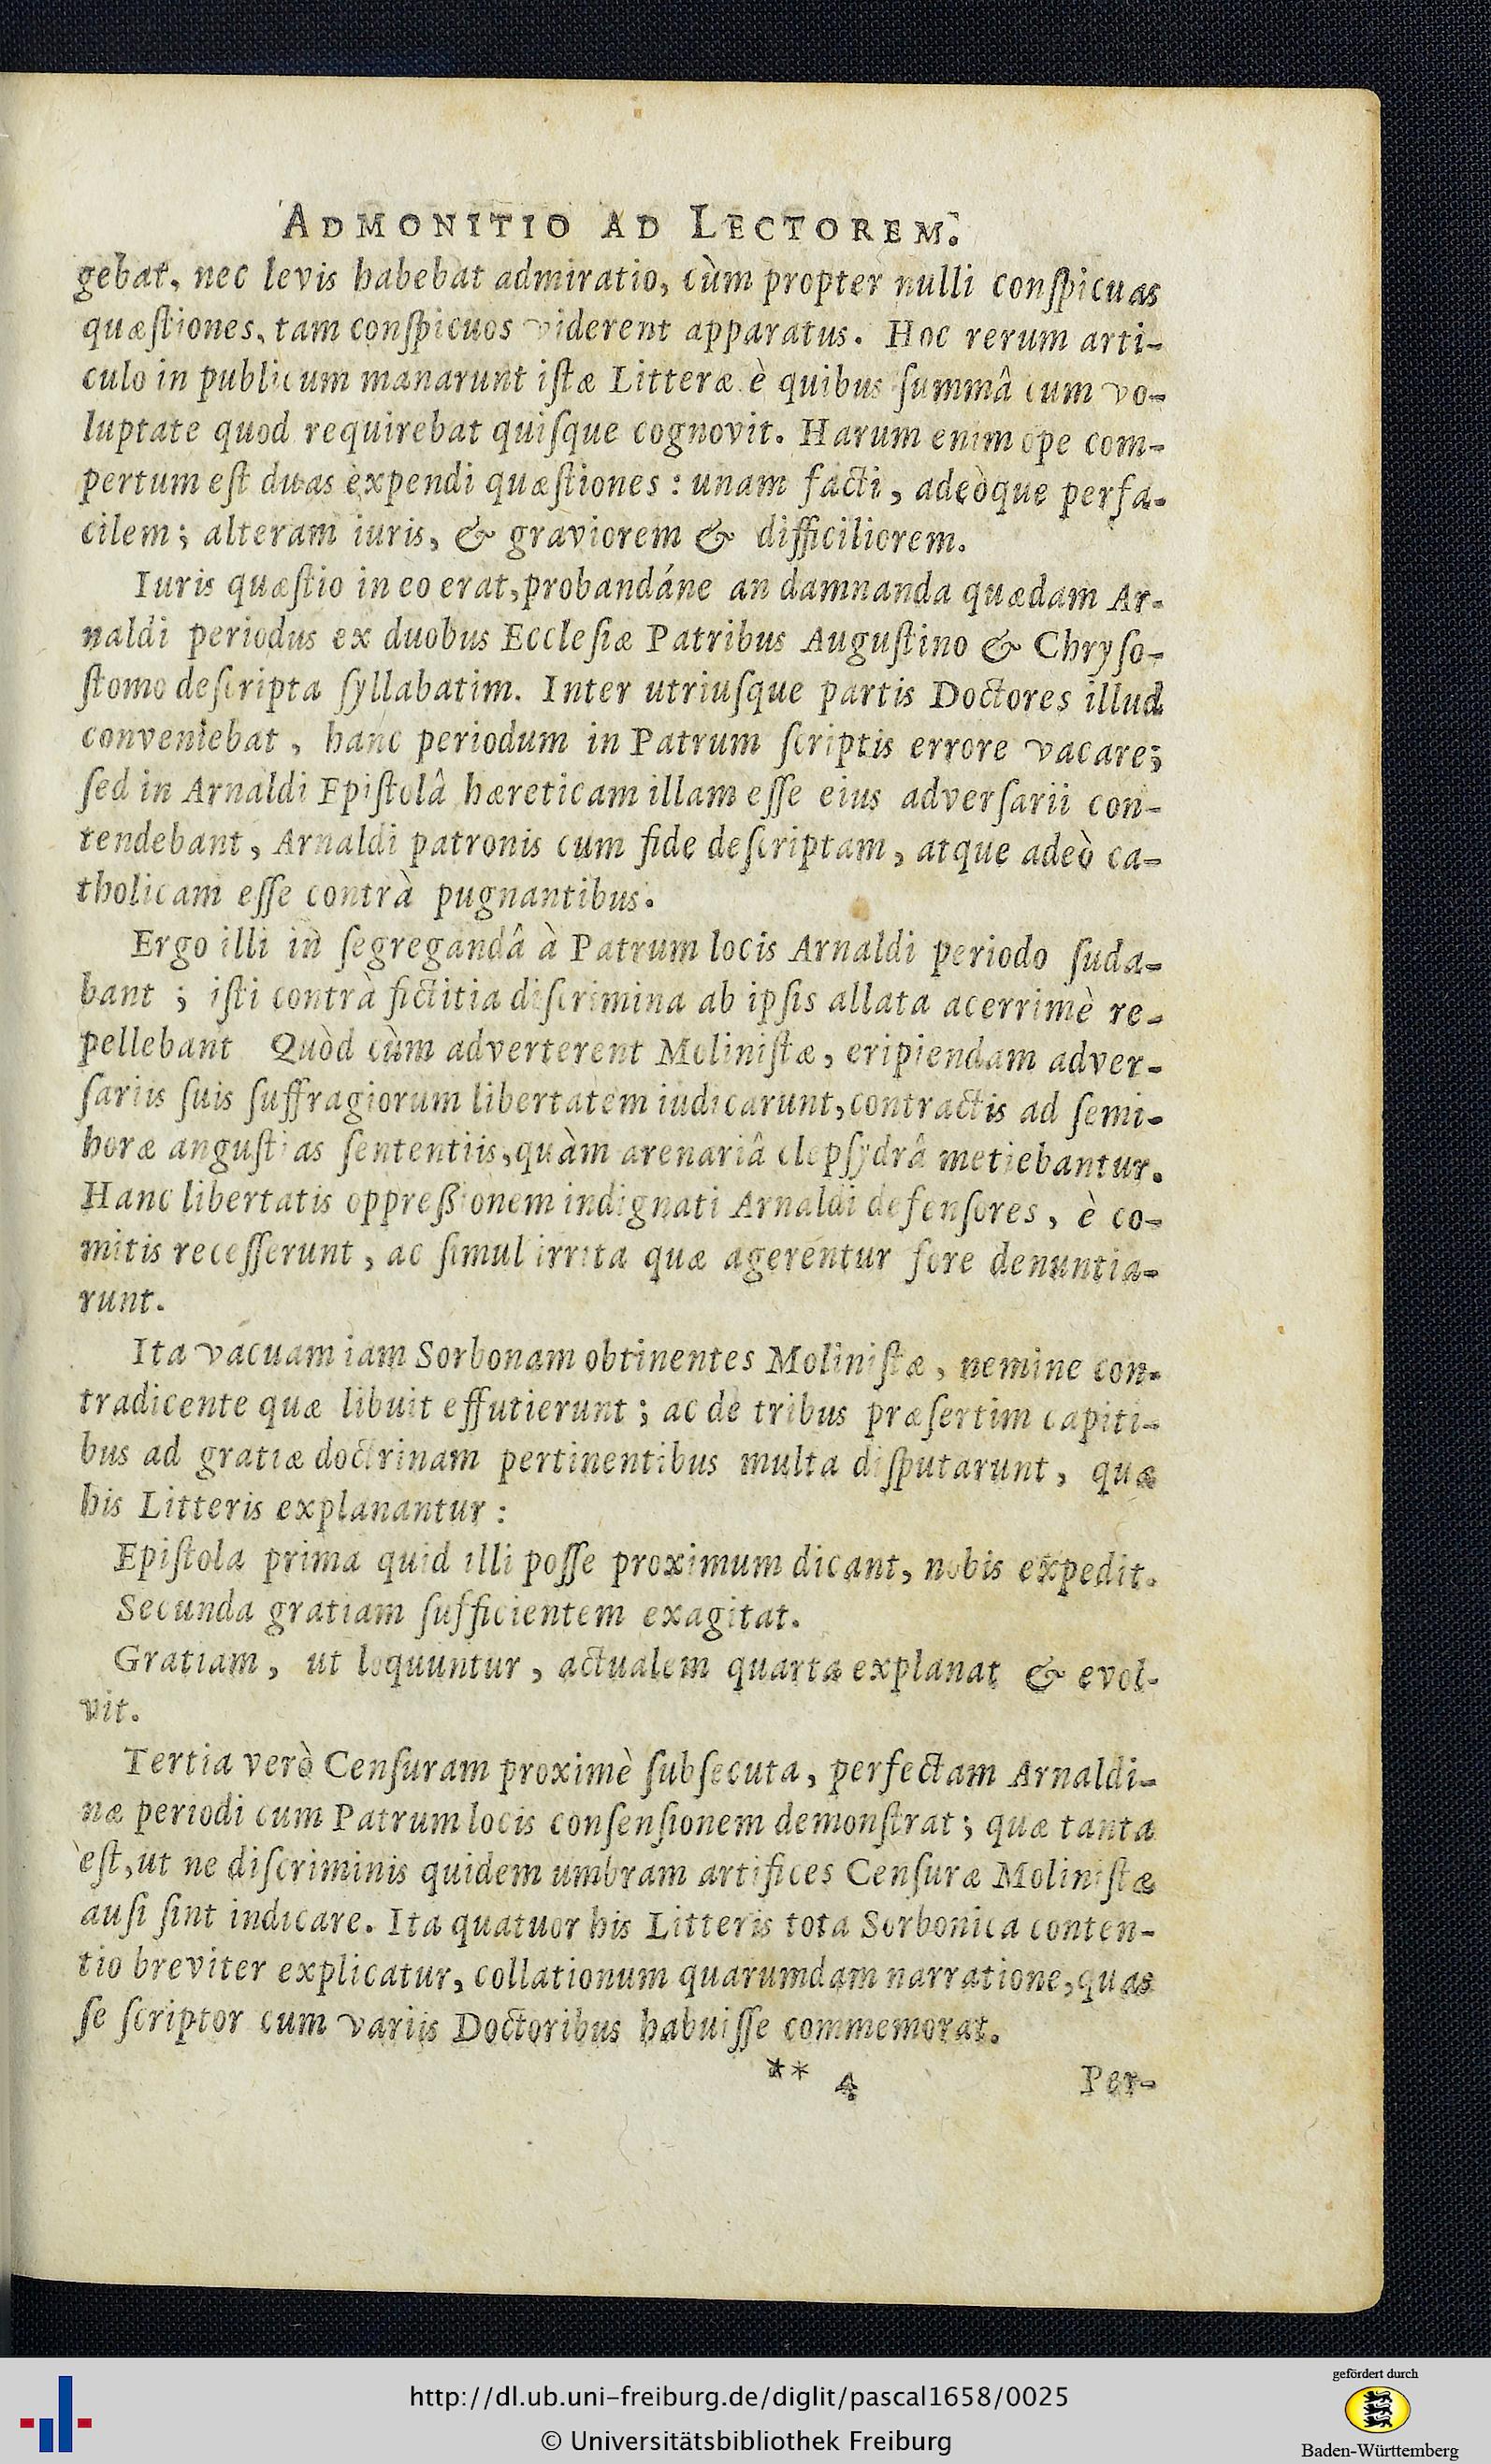 ADMONITIO AD LECTOREM.
gebat, nec levis habebat admiratio, cùm propter nulli conſpicuas
quæſtiones, tam conſpicuos viderent apparatus. Hoc rerum arti-
culo in publicum manarunt iſtæ Litteræ è quibus ſummâ cum vo-
luptate quod requirebat quiſque cognovit. Harum enim ope com-
pertum eſt duas expendi quæſtiones : unam facti, adeòque perfa-
cilem; alteram iuris, & graviorem & difficiliorem.
Iuris quæſtio in eo erat, probandáne an damnanda quædam Ar-
naldi periodus ex duobus Eccleſiæ Patribus Auguſtino & Chryſo-
ſtomo deſcripta ſyllabatim. Inter utriuſque partis Doctores illud
conveniebat, hanc periodum in Patrum ſcriptis errore vacare;
ſed in Arnaldi Epiſtolâ hæreticam illam eſſe eius adverſarii con-
tendebant, Arnaldi patronis cum fide deſcriptam, atque adeò ca-
tholicam eſſe contrà pugnantibus.
Ergo illi in ſegregandâ à Patrum locis Arnaldi periodo ſuda-
bant ; iſti contrà fictitia diſcrimina ab ipſis allata acerrimè re-
pellebant Quòd cùm adverterent Moliniſtæ, eripiendam adver-
ſariis ſuis ſuffragiorum libertatem iudicarunt, contractis ad ſemi-
horæ anguſtias ſententiis, quàm arenariâ clepſydrâ metiebantur.
Hanc libertatis oppreßionem indignati Arnaldi defenſores, è co-
mitis receſſerunt, ac ſimul irrita quæ agerentur fore denuntia-
runt.
Ita vacuam iam Sorbonam obtinentes Moliniſtæ, nemine con-
tradicente quæ libuit effutierunt ; ac de tribus præſertim capiti-
bus ad gratiæ doctrinam pertinentibus multa diſputarunt, quæ
his Litteris explanantur :
Epiſtola prima quid illi poſſe proximum dicant, nobis expedit.
Secunda gratiam ſufficientem exagitat.
Gratiam, ut loquuntur, actualem quarta explanat & evol-
vit.
Tertia verò Cenſuram proximè ſubſecuta, perfectam Arnaldi-
næ periodi cum Patrum locis conſenſionem demonſtrat ; quæ tanta
eſt, ut ne diſcriminis quidem umbram artifices Cenſuræ Moliniſtæ
auſi ſint indicare. Ita quatuor his Litteris tota Sorbonica conten-
tio breviter explicatur, collationum quarumdam narratione, quas
ſe ſcriptor cum variis Doctoribus habuiſſe commemorat.
** 4 Per-
gefördert durch
http://dl.ub.uni-freiburg.de/diglit/pascal1658/0025
© Universitätsbibliothek Freiburg
Baden-Württemberg